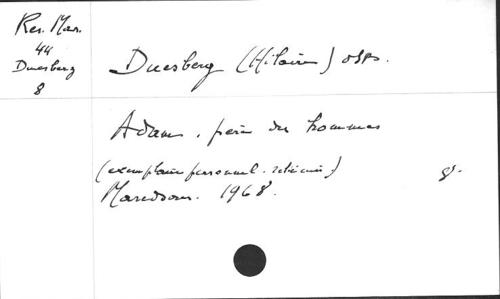 Res. Mar.
44
Duesberg
8
Duesberg (Hilaire) osb.
Adam, père des hommes
(exemplaire personnel.
Maredsous. 1968.
8°